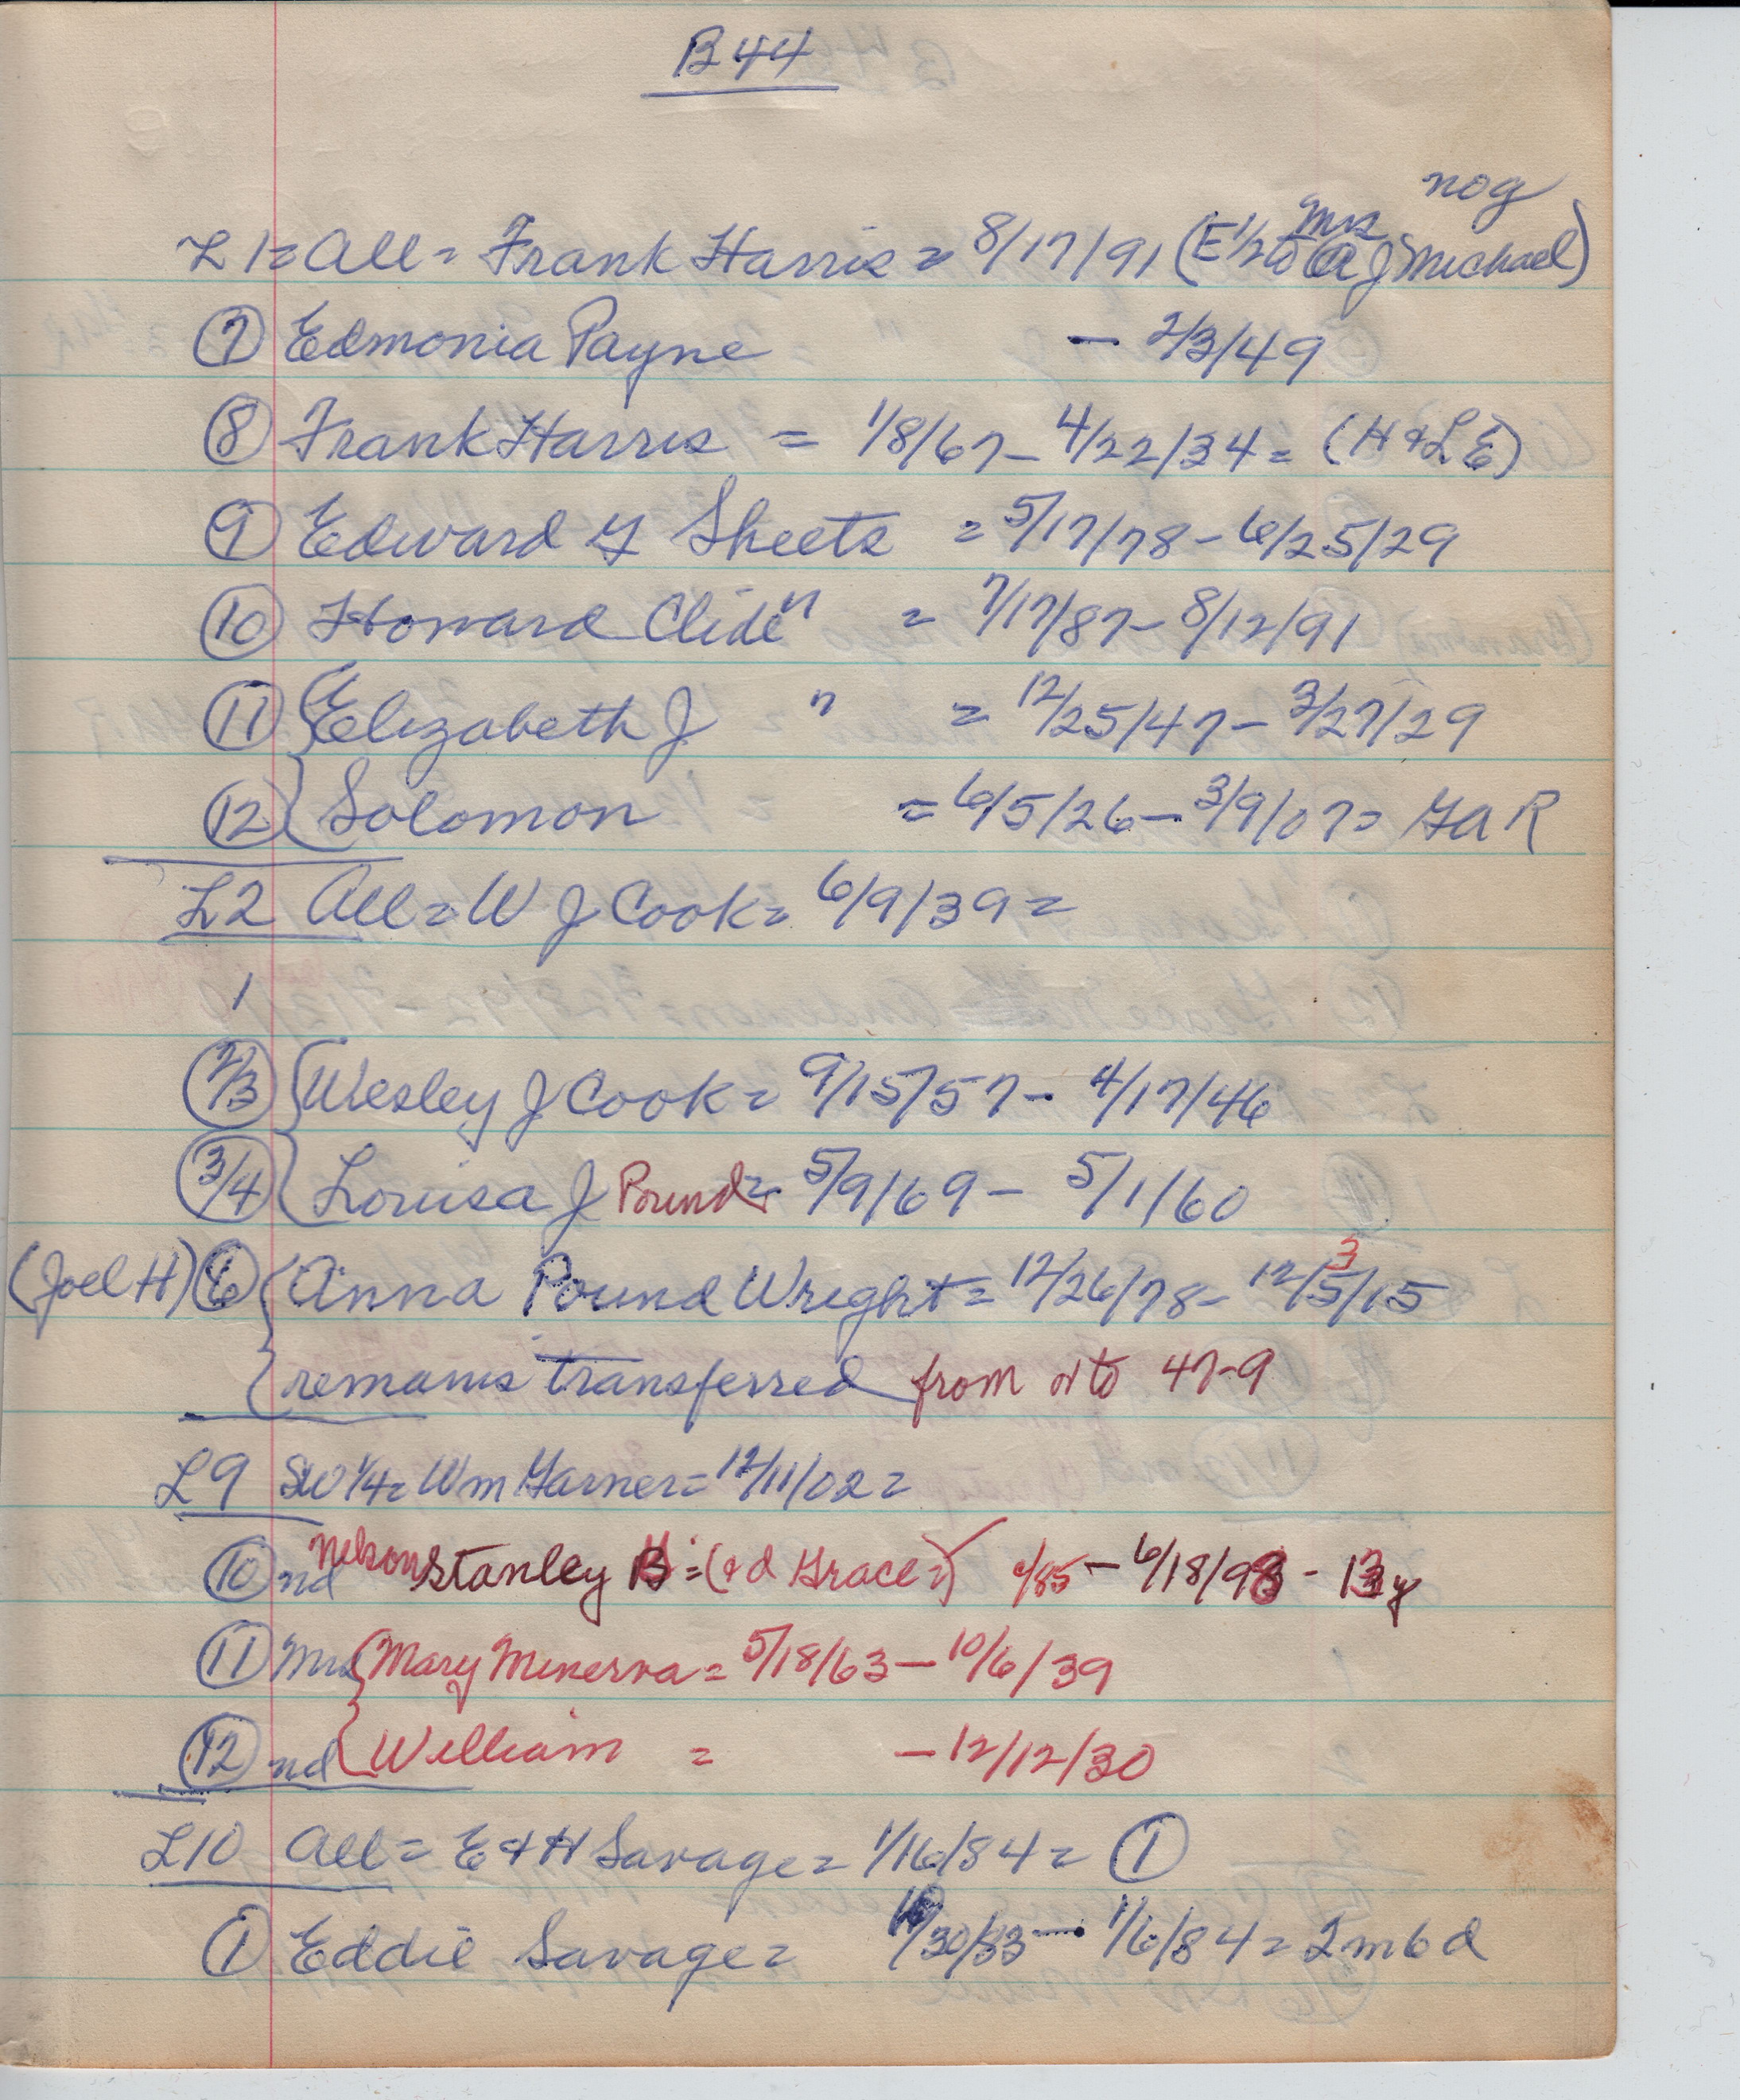 B 44
nog
L 1 = All = Frank Harris = 8/17/91 (E 1/2 to Mrs A J Michael)
7 Edmonia Payne - 2/3/49
8 Frank Harris = 1/8/67 - 4/22/34 = (H & L E)
9 Edward G Sheets = 5/17/78 - 6/25/29
10 Howard Clide " = 7/17/87 - 8/12/91
11 { Elizabeth J " = 12/25/47 - 3/27/29
12 { Solomon = 6/5/26 - 3/9/07 = GAR
L2 All = W J Cook = 6/9/39 =
1
2/3 { Wesley J Cook = 9/15/57 - 4/17/46
3/4 { Louisa J Pound = 5/9/69 - 5/1/60
(Joel H) 6 { Anna Pound Wright = 12/26/78 - 12/5/15 3
{ remains transferred from or to 47-9
L9 SW 1/4 = Wm Garner = 12/11/02 =
10 nd Nelson Stanley = (& d Grace =) /85 - 6/18/98 - 13y
11 Mrs { Mary Minerva = 5/18/63 - 10/6/39
12 nd { William = - 12/12/30
L10 All = E & H Savage = 1/16/84 = 1
1 Eddie Savage = /30/83 - 1/6/84 = 2m 6d